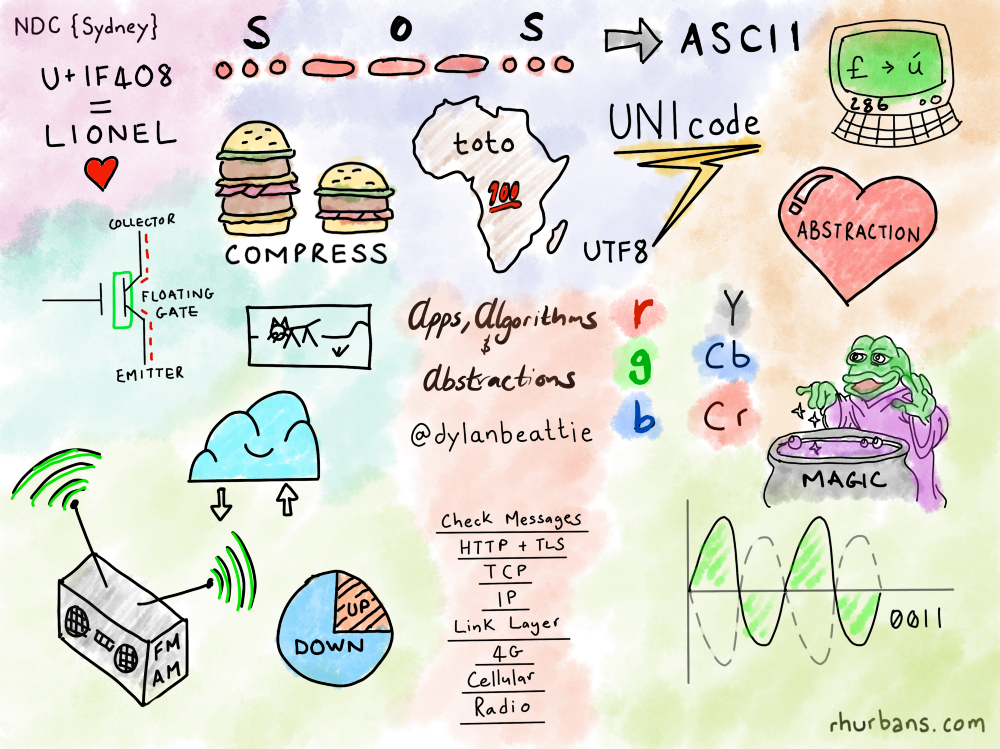 NDC {Sydney}
U+1F408
=
LIONEL
S O S
ASCII
£ → ú
286
UNIcode
UTF8
toto
100
COMPRESS
ABSTRACTION
COLLECTOR
FLOATING
GATE
EMITTER
Apps, Algorithms
&
Abstractions
@dylanbeattie
r
g
b
Y
Cb
Cr
MAGIC
Check Messages
HTTP + TLS
TCP
IP
Link Layer
4G
Cellular
Radio
FM
AM
UP
DOWN
0011
rhurbans.com